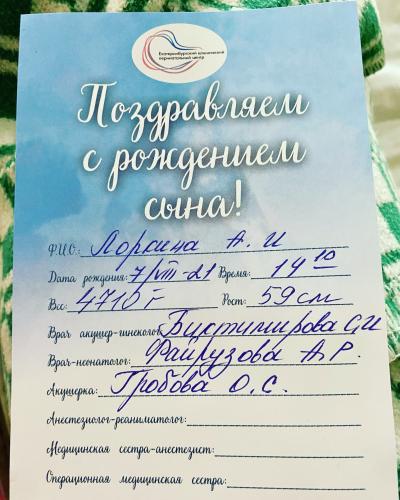 Екатеринбургский клинический
перинатальный центр
Поздравляем
с рождением
сына!
Ф.И.О.: Лоркина А. И
Дата рождения: 7/VIII-21 Время: 14 10
Вес: 4710 г Рост: 59 см
Врач акушер-гинеколог Биктимирова С.И
Врач-неонатолог: Файрузова А.Р.
Акушерка: Гробова О.С.
Анестезиолог-реаниматолог:
Медицинская сестра-анестезист:
Операционная медицинская сестра: